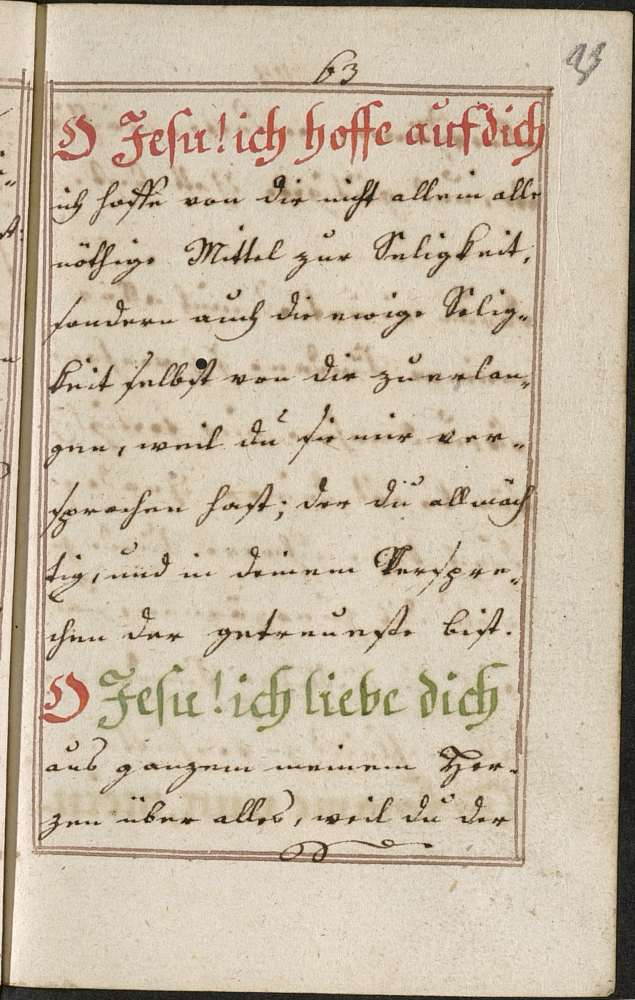 63
O Jesu! ich hoffe auf dich
ich hoffe von dir nicht allein alle
nöthige Mittel zur Seligkeit,
sondern auch die ewige Selig„
keit selbst von dir zu erlan„
gen, weil du sie mir ver„
sprochen hast; der du allmäch
tig, und in deinem Verspre„
chen der getreueste bist.
O Jesu! ich liebe dich
aus ganzem meinem Her„
zen über alles, weil du der